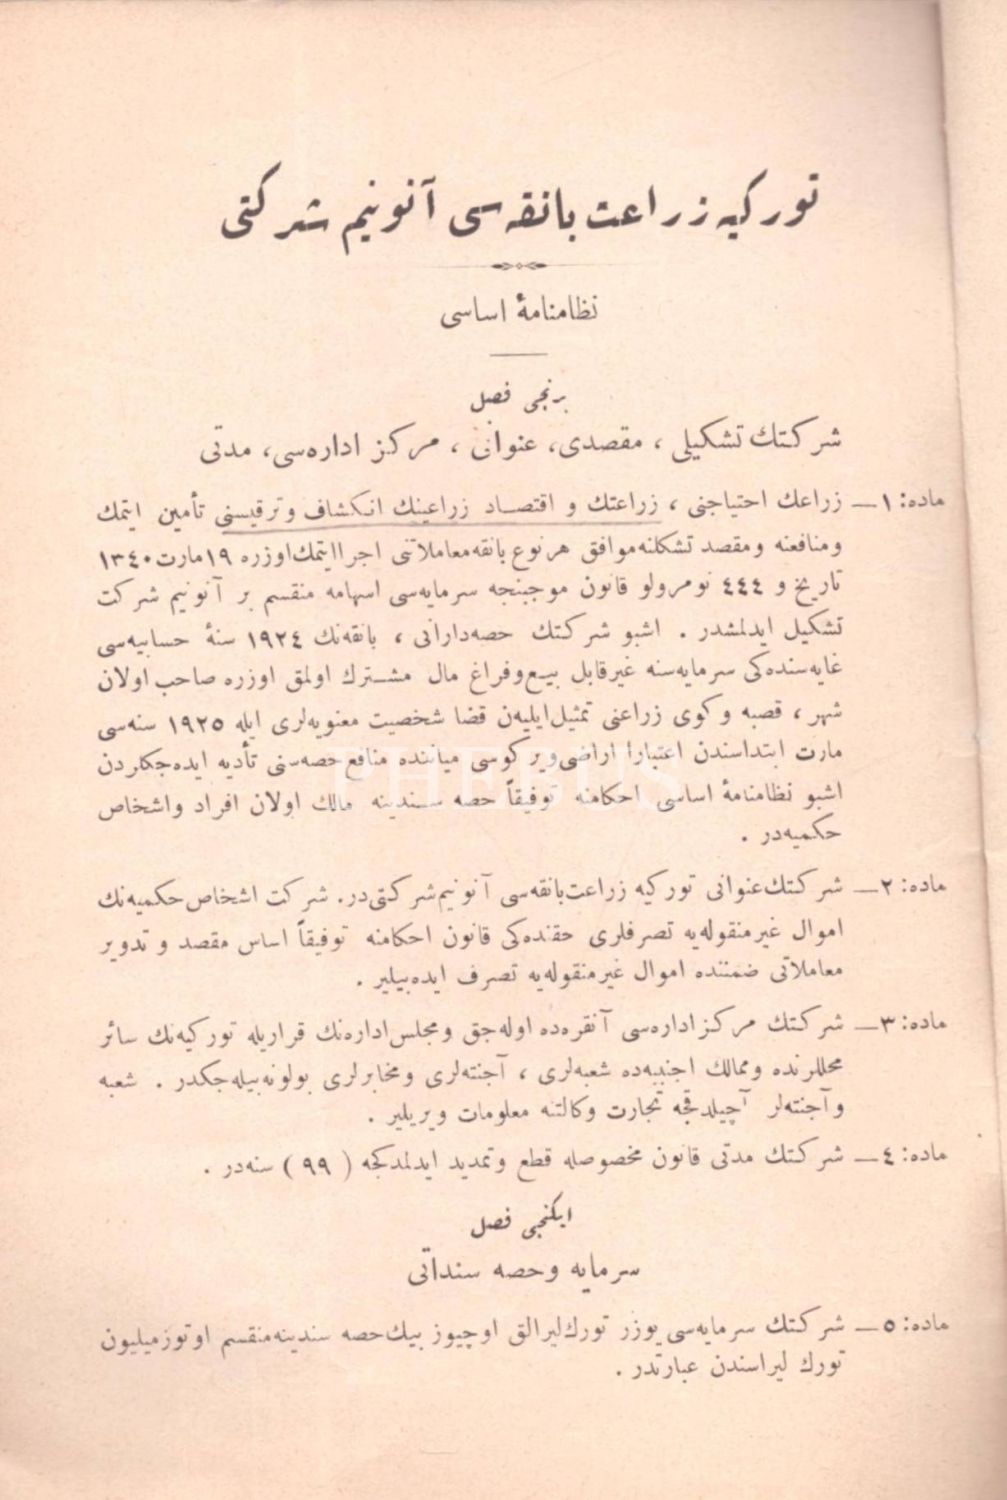 توركيه زراعت بانقه‌سی آنونيم شركتی
نظامنامهٔ اساسی
برنجی فصل
شركتك تشكيلی ، مقصدی، عنوانی ، مركز اداره‌سی، مدتی
ماده: ١ — زراعك احتياجنی ، زراعتك و اقتصاد زراعينك انكشاف و ترقيسنی تأمين ايتمك
و منافعنه و مقصد تشكلنه موافق هر نوع بانقه معاملاتنی اجرا ايتمك اوزره ١٩ مارت ١٣٤٠
تاريخ و ٤٤٤ نومرولو قانون موجبنجه سرمايه‌سی اسهامه منقسم بر آنونيم شركت
تشكيل ايدلمشدر . اشبو شركتك حصه‌دارانی ، بانقه‌نك ١٩٢٤ سنهٔ حسابيه‌سی
غايه‌سنده‌كی سرمايه‌سنه غيرقابل بيع و فراغ مال مشترك اولمق اوزره صاحب اولان
شهر ، قصبه و كوی زراعنی تمثيل ايليه‌ن قضا شخصيت معنويه‌لری ايله ١٩٢٥ سنه‌سی
مارت ابتداسندن اعتبارا اراضی ويركوسی مياننده منافع حصه‌سنی تأديه ايده‌جكلردن
اشبو نظامنامهٔ اساسی احكامنه توفيقاً حصه سندينه مالك اولان افراد و اشخاص
حكميه‌در .
ماده: ٢ — شركتك عنوانی توركيه زراعت بانقه‌سی آنونيم شركتی‌در. شركت اشخاص حكميه‌نك
اموال غيرمنقوله‌يه تصرفلری حقنده‌كی قانون احكامنه توفيقاً اساس مقصد و تدوير
معاملاتی ضمننده اموال غيرمنقوله‌يه تصرف ايده‌بيلير .
ماده: ٣ — شركتك مركز اداره‌سی آنقره‌ده اوله‌جق و مجلس اداره‌نك قراريله توركيه‌نك سائر
محللرنده و ممالك اجنبيه‌ده شعبه‌لری ، آجنته‌لری و مخابرلری بولونه‌بيله‌جكدر . شعبه
و آجنته‌لر آچيلدقجه تجارت وكالتنه معلومات ويريلير .
ماده: ٤ — شركتك مدتی قانون مخصوصله قطع و تمديد ايدلمدكجه ( ٩٩ ) سنه‌در .
ايكنجی فصل
سرمايه و حصه سنداتی
ماده: ٥ — شركتك سرمايه‌سی يوزر تورك ليرالق اوچيوز بيك حصه سندينه منقسم اوتوز ميليون
تورك ليراسندن عبارتدر .
PHEBUS